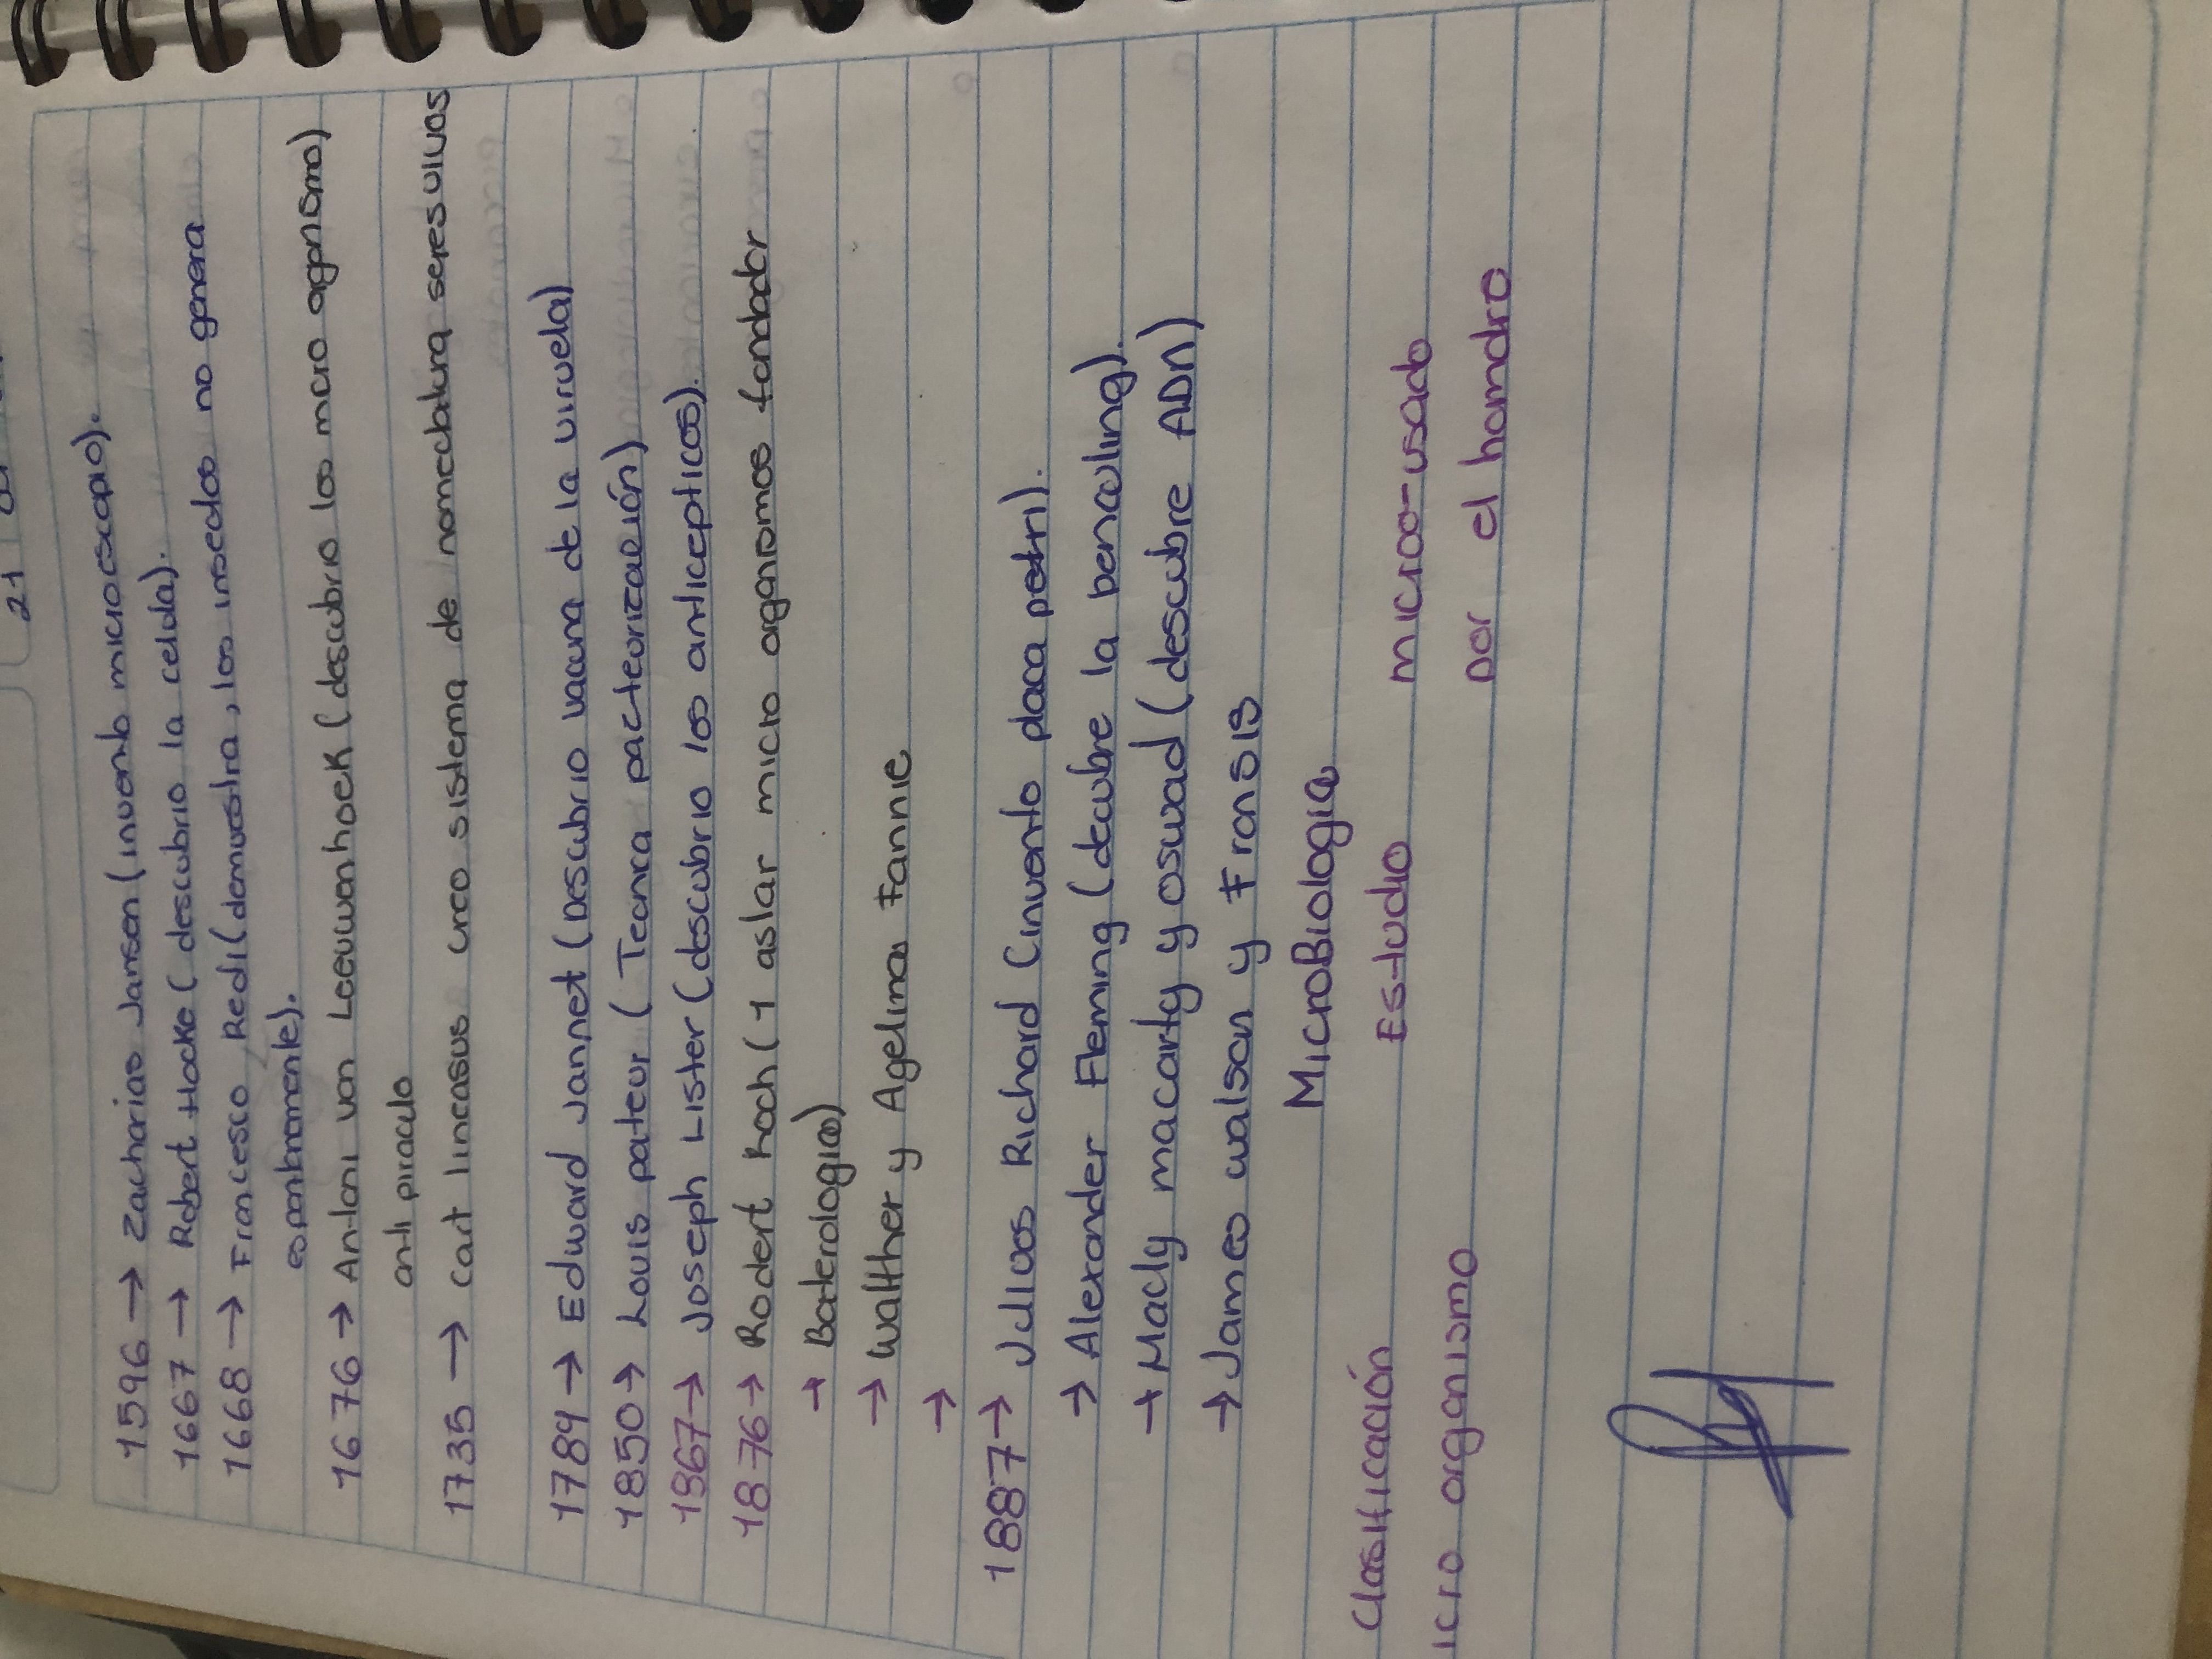 21
1596 → Zacharias Jansen (invento microescopio).
1667 → Robert Hocke (descubrio la celula).
1668 → Francesco Redi (demuestra, los insectos no genera
espontanamente).
1676 → Antoni van Leeuwenhoek (descubrio los micro agnismo)
anti piraculo
1735 → Cart lincasus creo sistema de nomecbatura seres vivos
1789 → Edward Jannet (Descubrio vacuna de la viruela)
1850 → Louis pateur (Tecnica pacteorización)
1867 → Joseph Lister (descubrio los anticepticos).
1876 → Rodert Koch (1 aslar micro organismos fondador
→ Baterologica)
→ Walther y Agelina Fannie
→
1887 → Julios Richard (invento placa petri).
→ Alexander Fleming (decubre la benculing).
→ Macly macarty y oswad (descubre ADN)
→ James walson y Fransis
MicroBiologia
Clasificación Estudio micro-usado
icro organismo por el homdro